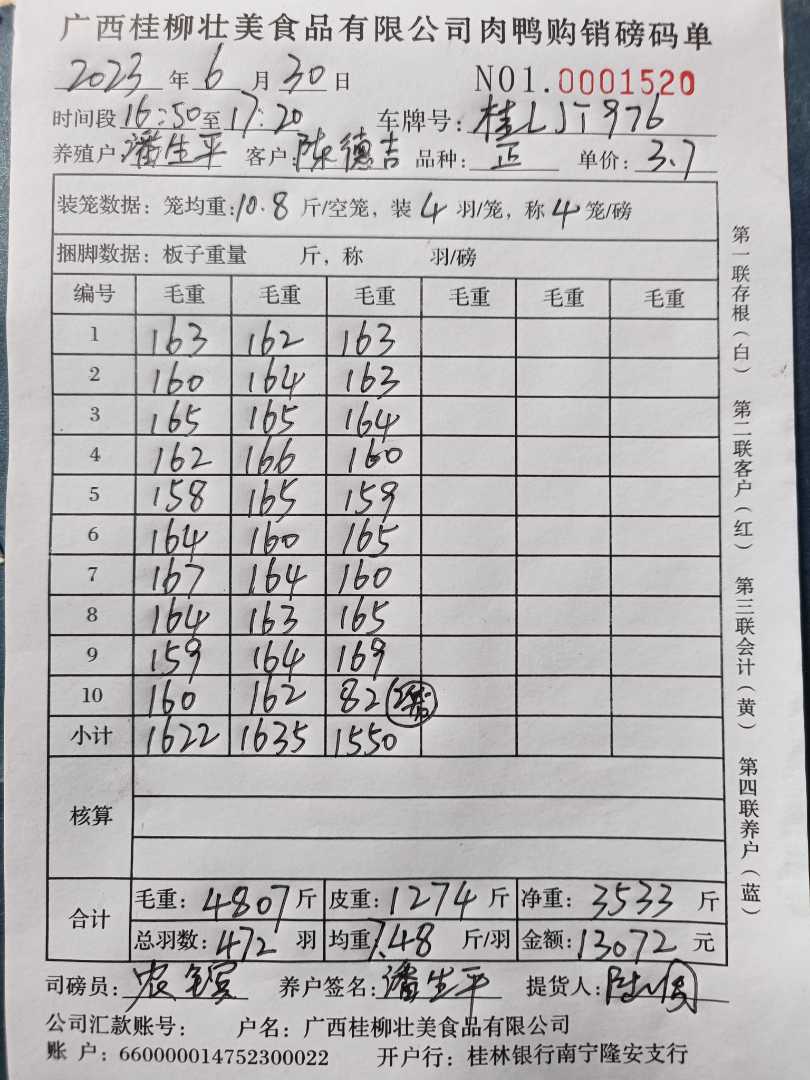 广西桂柳壮美食品有限公司肉鸭购销磅码单
2023 年 6 月 30 日 NO1.0001520
时间段 16:50 至 17:20 车牌号: 桂LJT976
养殖户: 潘生平 客户: 陈德吉 品种: 正 单价: 3.7
装笼数据: 笼均重: 10.8 斤/空笼, 装 4 羽/笼, 称 4 笼/磅
捆脚数据: 板子重量 斤, 称 羽/磅
编号 毛重 毛重 毛重 毛重 毛重 毛重
1 163 162 163
2 160 164 163
3 165 165 164
4 162 166 160
5 158 165 159
6 164 160 165
7 167 164 160
8 164 163 165
9 159 164 169
10 160 162 82
小计 1622 1635 1550
核算
合计 毛重: 4807 斤 皮重: 1274 斤 净重: 3533 斤
总羽数: 472 羽 均重: 7.48 斤/羽 金额: 13072 元
司磅员: 养户签名: 潘生平 提货人:
公司汇款账号: 户名: 广西桂柳壮美食品有限公司
账 户: 660000014752300022 开户行: 桂林银行南宁隆安支行
第一联存根(白) 第二联客户(红) 第三联会计(黄) 第四联养户(蓝)